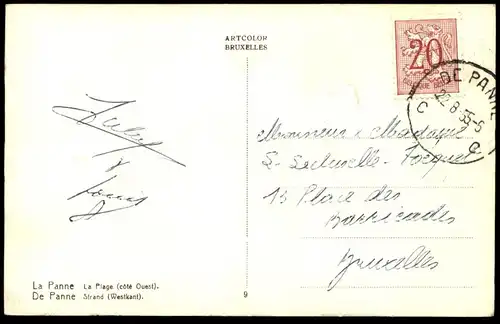 ARTCOLOR
BRUXELLES
20
DE PANNE
22-8-55-6
C C
Monsieur & Madame
13 Place des
Barricades
Bruxelles
La Panne La Plage (côté Ouest).
De Panne Strand (Westkant).
9